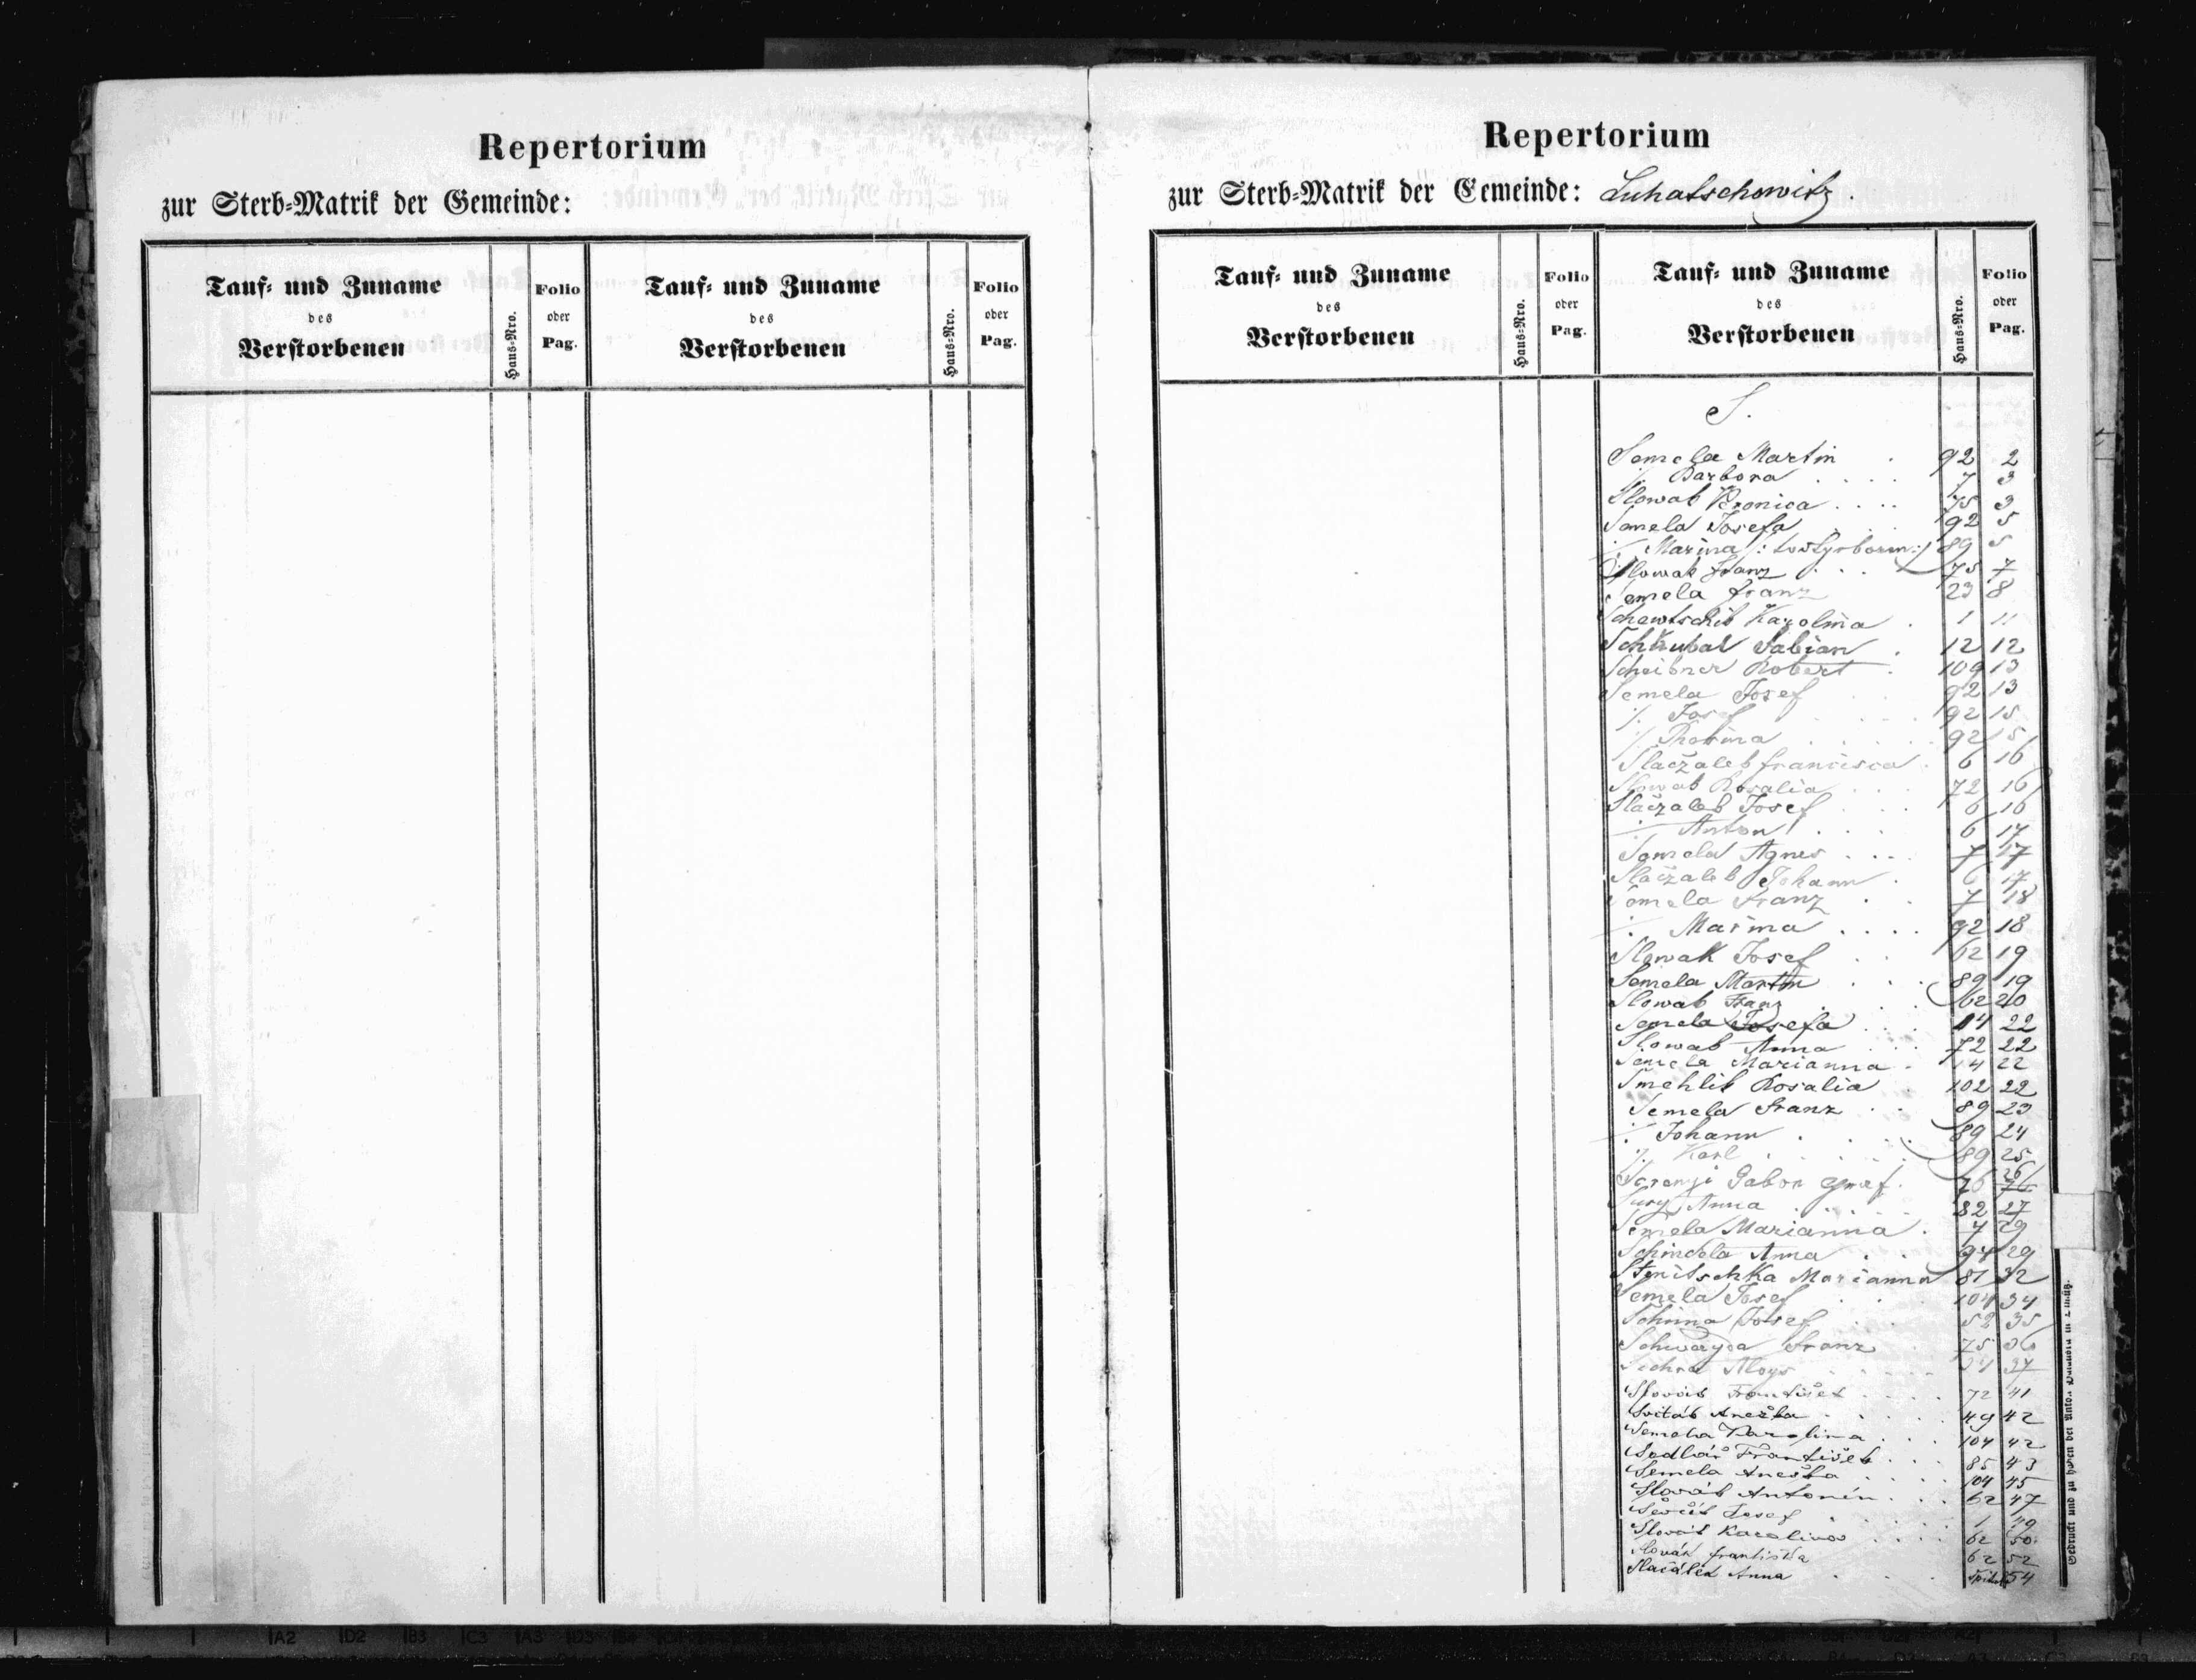 Repertorium
zur Sterb-Matrik der Gemeinde:
Tauf- und Zuname
des
Verstorbenen
Haus-Nro.
Folio
oder
Pag.
Tauf- und Zuname
des
Verstorbenen
Haus-Nro.
Folio
oder
Pag.
Repertorium
zur Sterb-Matrik der Gemeinde: Luhatschowitz.
Tauf- und Zuname
des
Verstorbenen
Haus-Nro.
Folio
oder
Pag.
Tauf- und Zuname
des
Verstorbenen
Haus-Nro.
Folio
oder
Pag.
S.
Semela Martin . 92 2
/. Barbora . . . . 7 3
Slowak Veronica . . . . 75 3
Semela Josefa . . . 92 5
/. Marina 89 5
Slowak Franz . . . 75 7
Semela Franz 23 8
Karolina . 1 11
Schkubal Fabian . 12 12
Scheibner Robert . 109 13
Semela Josef . . 92 13
/. Josef . . . . 92 15
/. Rosina . . . . . 92 15
Slaczalek Francisca . 6 16
Slowak Rosalia . . . 72 16
Slaczalek Josef . . . 6 16
/. Anton . . . 6 17
Semela Agnes . . . 7 17
Slaczalek Johann . 6 17
Semela Franz . . 7 18
/. Marina . . . . 92 18
Slowak Josef . . 62 19
Semela Martin . . . 89 19
Slowak Franz . . . 62 20
Semela Josefa . . . 14 22
Slowak Anna . . . 72 22
Semela Marianna . 14 22
Smehlik Rosalia 102 22
Semela Franz . . 89 23
/. Johann . . . . 89 24
/. Karl . . . . . 89 25
Gabor Graf . 76 26
Anna . . . . . 82 27
Semela Marianna . 7 29
Schindela Anna . . 94 29
Stenitschka Marianna 81 32
Semela Josef . . . 104 34
Josef . . . 52 35
Franz . 75 36
Aloys . . . . . 37
Slovák František . . . . 72 41
Sviták Anežka . . . . . 49 42
Semela Karolina . . . 104 42
Sedlář František . . . 85 43
Semela Anežka . . . . 104 45
Slovák Antonín . . . 62 47
Ševčík Josef . . . . . 1 49
Slovák Karolina . . . . 62 50
Slovák Františka 62 52
Slačálek Anna . . . 54
Gedruckt und zu haben bei Anton